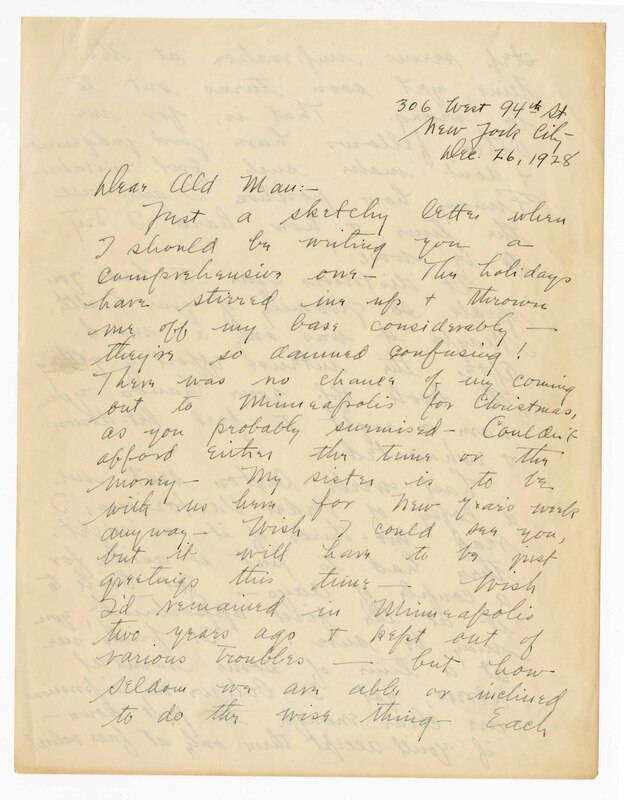 306 West 94th St
New York City
Dec. 26, 1928
Dear Old Man:-
Just a sketchy letter when
I should be writing you a
comprehensive one- The holidays
have stirred me up + thrown
me off my base considerably —
they're so damned confusing!
There was no chance of my coming
out to Minneapolis for Christmas,
as you probably surmised- Couldn't
afford either the time or the
money- My sister is to be
with us here for New Years week
anyway- Wish I could see you,
but it will have to be just
greetings this time- Wish
I'd remained in Minneapolis
two years ago + kept out of
various troubles — but how
seldom we are able or inclined
to do the wise thing- Each